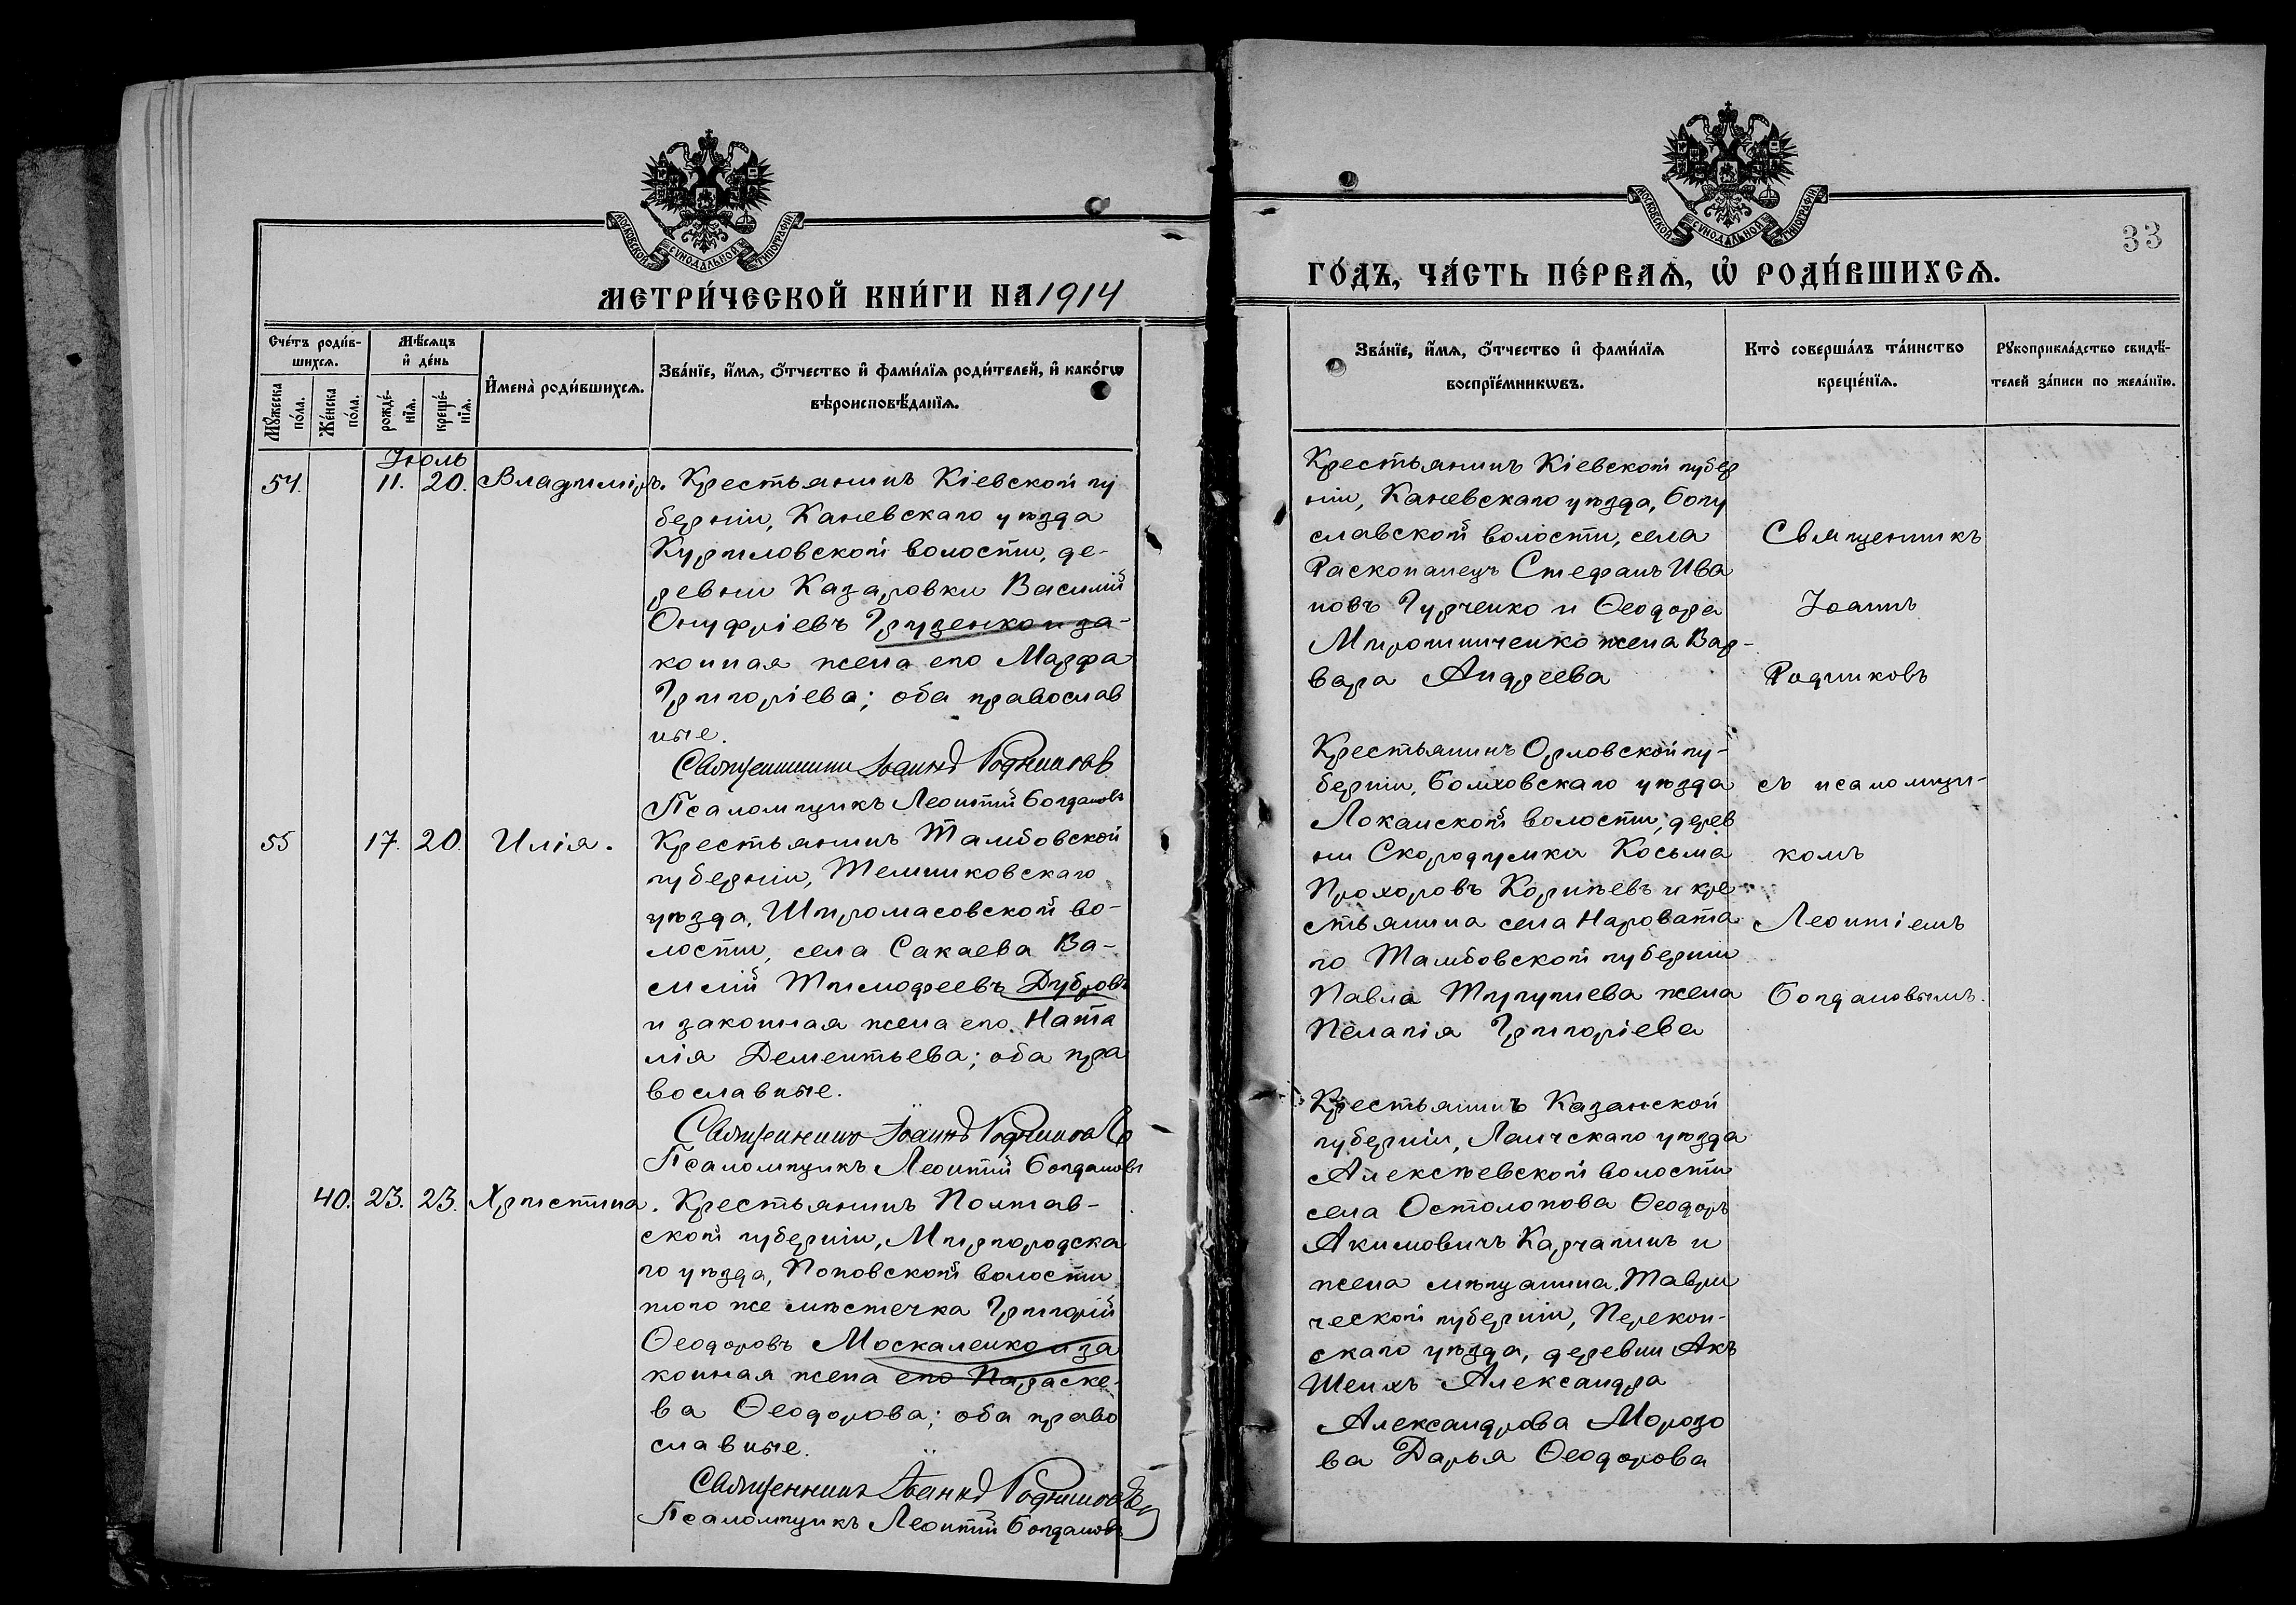 МОСКОВСКОЙ СѴНОДАЛЬНОЙ ТИПОГРАФІИ
МЕТРИ́ЧЕСКОЙ КНИ́ГИ НА 1914
Сче́тъ роди́в-
шихсѧ.
Мѣ́сѧцъ
и҆ де́нь
Мꙋ́жеска
по́ла.
Же́нска
по́ла.
рожде́-
нїѧ.
креще́-
нїѧ.
И҆мена̀ роди́вшихсѧ.
Зва́нїе, и҆́мѧ, ѻ҆́тчество и҆ фами́лїѧ роди́телей, и҆ како́гѡ
вѣроисповѣ́данїѧ.
Іюль
54. 11. 20. Владиміръ. Крестьянинъ Кіевской гу
берніи, Каневскаго уѣзда
Куриловской волости, де-
ревни Казаровки Василій
Онуфріевъ Грузенко и за-
конная жена его Марфа
Григоріева; оба православ
ные.
Священникъ Іоаннъ Родниковъ
Псаломщикъ Леонтій Богдановъ
55 17. 20. Илія. Крестьянинъ Тамбовской
губерніи, Темниковскаго
уѣзда, Широмасовской во-
лости, села Сакаева Ва-
силій Тимофеевъ Дубровъ
и законная жена его Ната
лія Дементьева; оба пра
вославные.
Священникъ Іоаннъ Родниковъ
Псаломщикъ Леонтій Богдановъ
40. 23. 23. Христина. Крестьянинъ Полтав-
ской губерніи, Миргородска
го уѣзда, Поповской волости
того же мѣстечка Григорій
Ѳеодоровъ Москаленко и за
конная жена его Параске-
ва Ѳеодорова; оба право
славные.
Священникъ Іоаннъ Родниковъ
Псаломщикъ Леонтій Богдановъ
МОСКОВСКОЙ СѴНОДАЛЬНОЙ ТИПОГРАФІИ
33
ГО́ДЪ, ЧА́СТЬ ПЕ́РВАѦ, Ѡ҆ РОДИ́ВШИХСѦ.
Зва́нїе, и҆́мѧ, ѻ҆́тчество и҆ фами́лїѧ
воспрїе́мникѡвъ.
Кто̀ соверша́лъ та́инство
креще́нїѧ.
Рꙋкоприкла́дство свидѣ́-
телей за́писи по жела́нїю.
Крестьянинъ Кіевской губер
ніи, Каневскаго уѣзда, Богу
славской волости, села
Раскопанецъ Стефанъ Ива
новъ Гурченко и Ѳеодора
Мирошниченко жена Вар-
вара Андреева
Крестьянинъ Орловской гу-
берніи, Болховскаго уѣзда
Локанской волости, дерев
ни Скородумки Косьма
Прохоровъ Корнѣевъ и кре
стьянина села Нароватa
го Тамбовской губерніи
Павла Тугушева жена
Пелагія Григоріева
Крестьянинъ Казанской
губерніи, Лаичскаго уѣзда
Алексѣевской волости
села Остолопова Ѳеодоръ
Акимовичъ Карчагинъ и
жена мѣщанина Таври
ческой губерніи, Перекоп-
скаго уѣзда, деревни Акъ
Шеихъ Александра
Александрова Морозо
ва Дарья Ѳеодорова
Священникъ
Іоаннъ
Родниковъ
съ псаломщи-
комъ
Леонтіемъ
Богдановымъ.